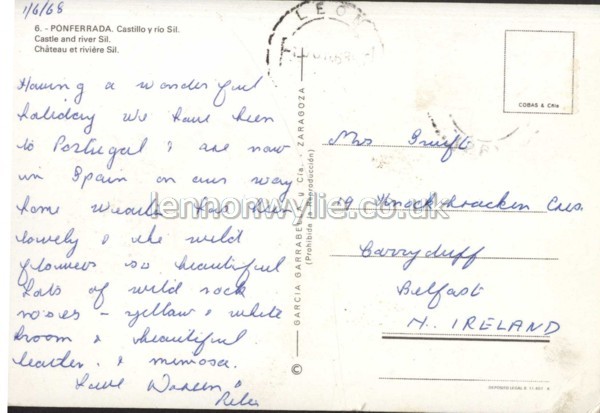 1/6/68
6. - PONFERRADA. Castillo y río Sil.
Castle and river Sil.
Château et rivière Sil.
Having a wonderful
holiday we have been
to Portugal & are now
in Spain on our way
home weather has been
lovely & the wild
flowers so beautiful
Lots of wild rock
roses - yellow & white
broom & beautiful
heather. & mimosa.
Love
LEON
GARCIA GARRABELLA y Cía. - ZARAGOZA
(Prohibida la reproducción)
COBAS & CRIA
Mrs
19 Knockbracken Cres.
Carryduff
Belfast
N. IRELAND
lennonwylie.co.uk